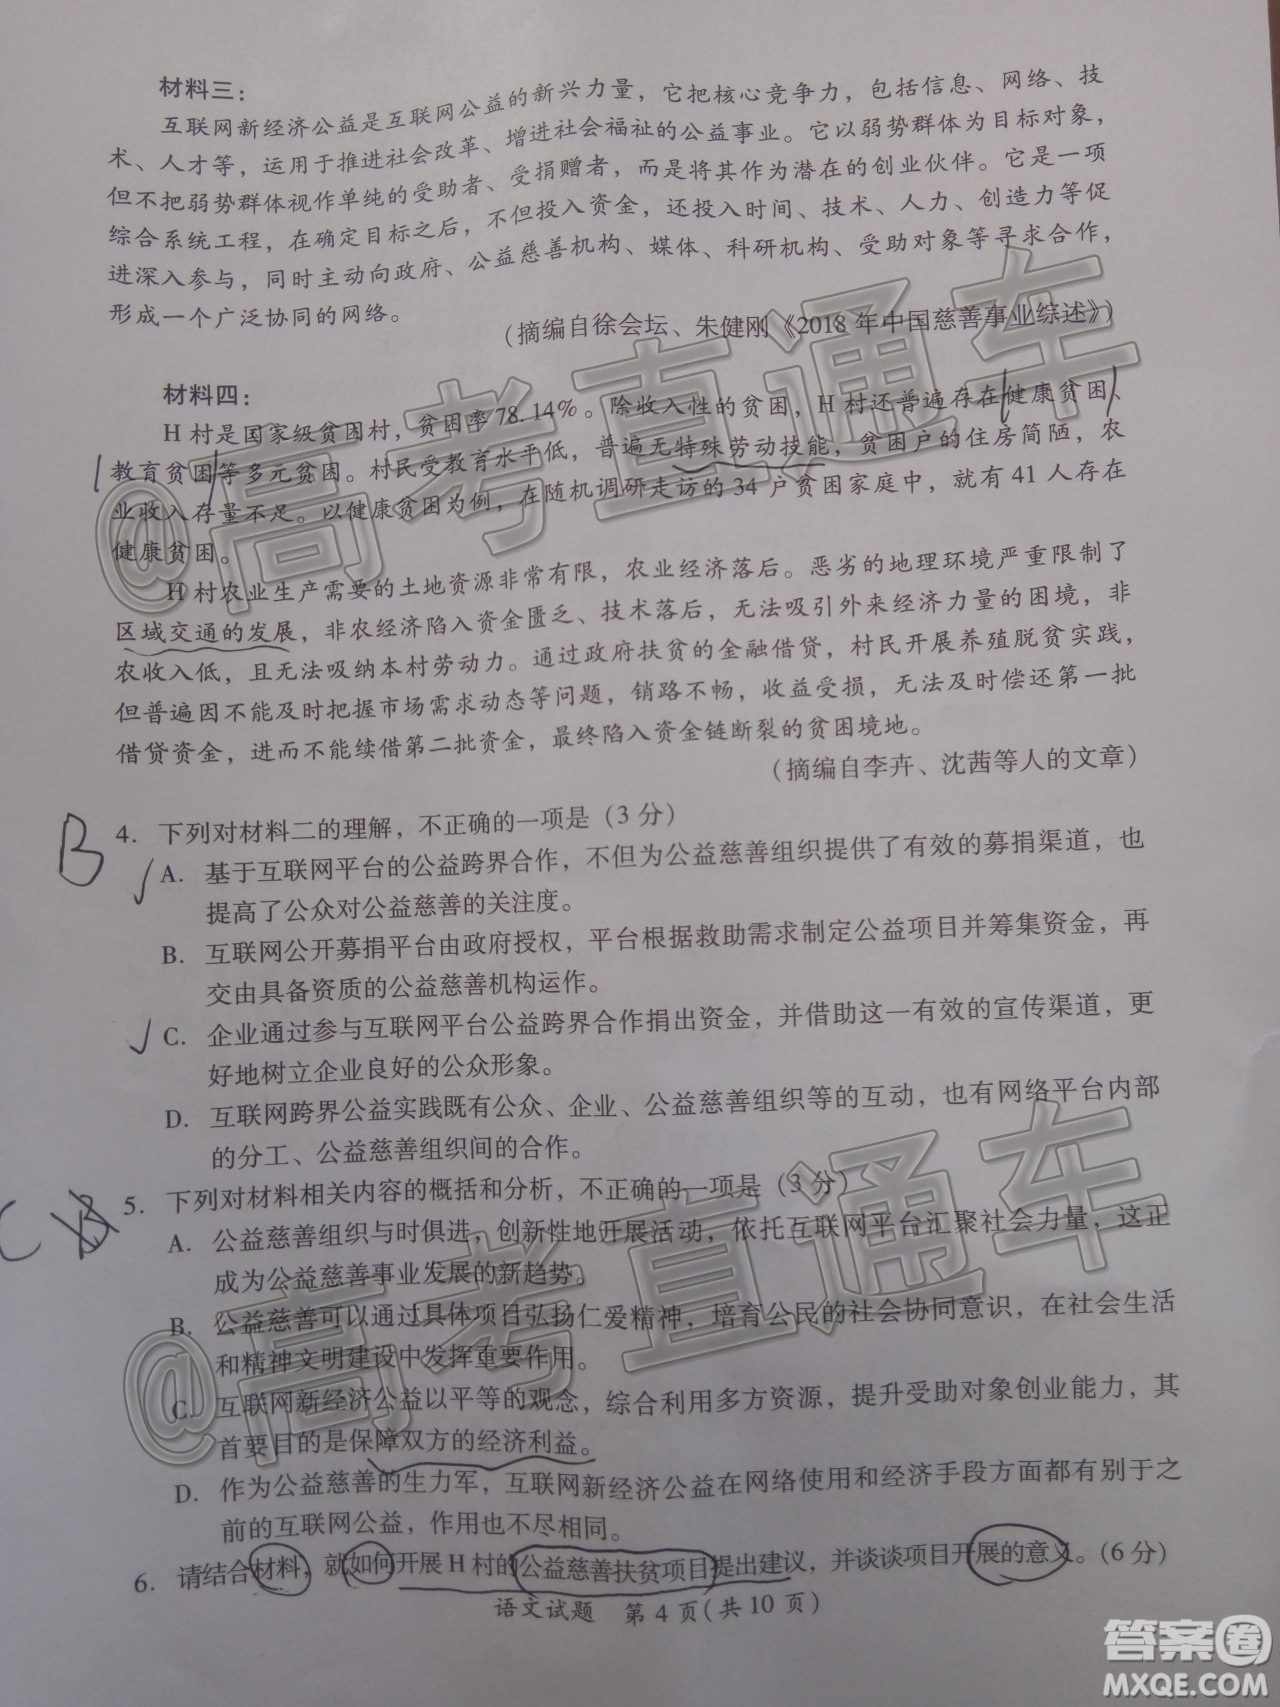 材料三：
互联网新经济公益是互联网公益的新兴力量，它把核心竞争力，包括信息、网络、技
术、人才等，运用于推进社会改革、增进社会福祉的公益事业。它以弱势群体为目标对象，
但不把弱势群体视作单纯的受助者、受捐赠者，而是将其作为潜在的创业伙伴。它是一项
综合系统工程，在确定目标之后，不但投入资金，还投入时间、技术、人力、创造力等促
进深入参与，同时主动向政府、公益慈善机构、媒体、科研机构、受助对象等寻求合作，
形成一个广泛协同的网络。
（摘编自徐会坛、朱健刚《2018年中国慈善事业综述》）
材料四：
H村是国家级贫困村，贫困率78.14%。除收入性的贫困，H村还普遍存在健康贫困、
教育贫困等多元贫困。村民受教育水平低，普遍无特殊劳动技能，贫困户的住房简陋，农
业收入存量不足。以健康贫困为例，在随机调研走访的34户贫困家庭中，就有41人存在
健康贫困。
H村农业生产需要的土地资源非常有限，农业经济落后。恶劣的地理环境严重限制了
区域交通的发展，非农经济陷入资金匮乏、技术落后，无法吸引外来经济力量的困境，非
农收入低，且无法吸纳本村劳动力。通过政府扶贫的金融借贷，村民开展养殖脱贫实践，
但普遍因不能及时把握市场需求动态等问题，销路不畅，收益受损，无法及时偿还第一批
借贷资金，进而不能续借第二批资金，最终陷入资金链断裂的贫困境地。
（摘编自李卉、沈茜等人的文章）
B 4. 下列对材料二的理解，不正确的一项是（3分）
A. 基于互联网平台的公益跨界合作，不但为公益慈善组织提供了有效的募捐渠道，也
提高了公众对公益慈善的关注度。
B. 互联网公开募捐平台由政府授权，平台根据救助需求制定公益项目并筹集资金，再
交由具备资质的公益慈善机构运作。
C. 企业通过参与互联网平台公益跨界合作捐出资金，并借助这一有效的宣传渠道，更
好地树立企业良好的公众形象。
D. 互联网跨界公益实践既有公众、企业、公益慈善组织等的互动，也有网络平台内部
的分工、公益慈善组织间的合作。
C 5. 下列对材料相关内容的概括和分析，不正确的一项是（3分）
A. 公益慈善组织与时俱进，创新性地开展活动，依托互联网平台汇聚社会力量，这正
成为公益慈善事业发展的新趋势。
B. 公益慈善可以通过具体项目弘扬仁爱精神，培育公民的社会协同意识，在社会生活
和精神文明建设中发挥重要作用。
C. 互联网新经济公益以平等的观念，综合利用多方资源，提升受助对象创业能力，其
首要目的是保障双方的经济利益。
D. 作为公益慈善的生力军，互联网新经济公益在网络使用和经济手段方面都有别于之
前的互联网公益，作用也不尽相同。
6. 请结合材料，就如何开展H村的公益慈善扶贫项目提出建议，并谈谈项目开展的意义。（6分）
语文试题 第4页（共10页）
@高考直通车
@高考直通车
答案圈
MXQE.COM